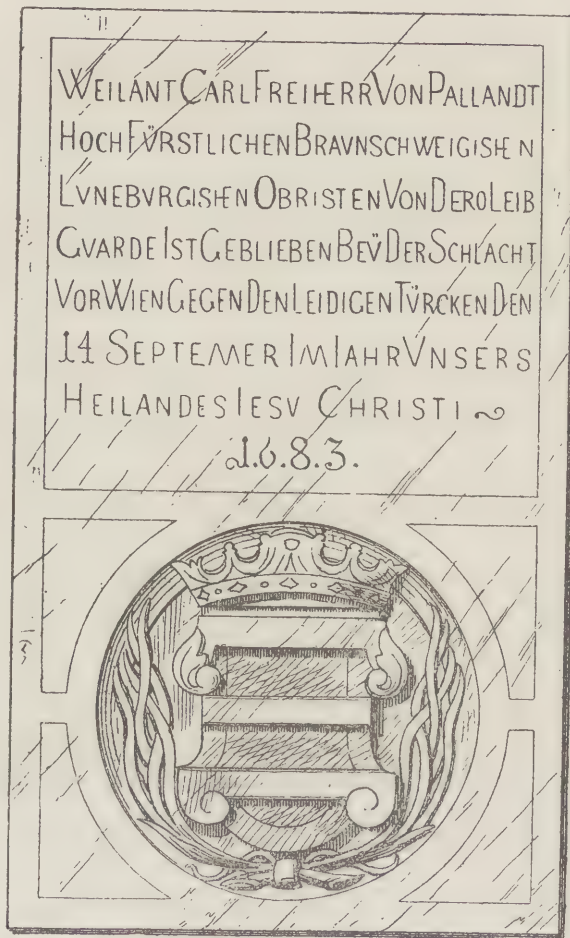 WEILANT CARL FREIHERR VON PALLANDT
HOCH FÜRSTLICHEN BRAVNSCHWEIGISHEN
LVNEBVRGISHEN OBRISTEN VON DERO LEIB
GVARDE IST GEBLIEBEN BEŸ DER SCHLACHT
VOR WIEN GEGEN DEN LEIDIGEN TÜRCKEN DEN
14 SEPTEMER IM IAHR VNSERS
HEILANDES IESV CHRISTI ~
1.6.8.3.